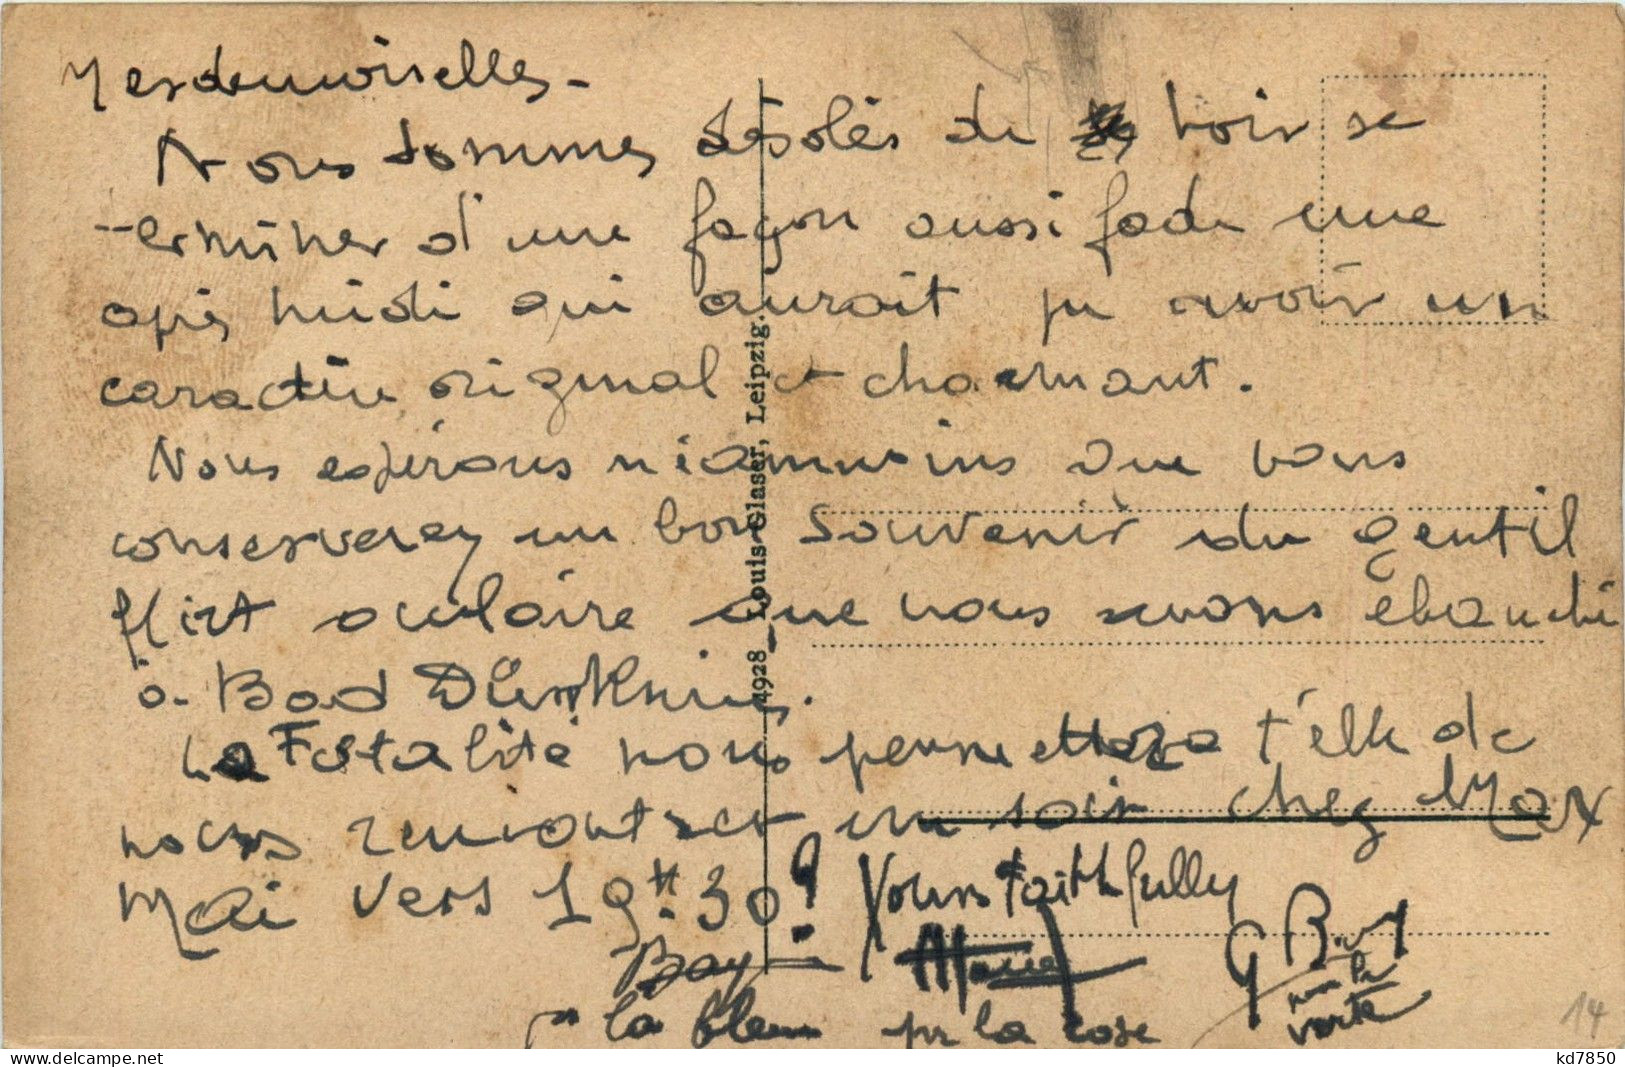 Mesdemoiselles -
Nous sommes désolés de voir se
terminer d'une façon aussi fade une
après midi qui aurait pu avoir un
caractère original et charmant.
Nous espérons néammoins que vous
conserverez un bon souvenir du gentil
flirt oculaire que nous avons ébauché
à Bad Dürkheim.
La Fatalité nous permettra t'elle de
nous rencontrer un soir chez Max
Mai vers 19H.30?
Yours Faithfully
pr la bleue pr la rose
pour la
verte
4928 Louis Glaser, Leipzig.
14
kd7850
delcampe.net